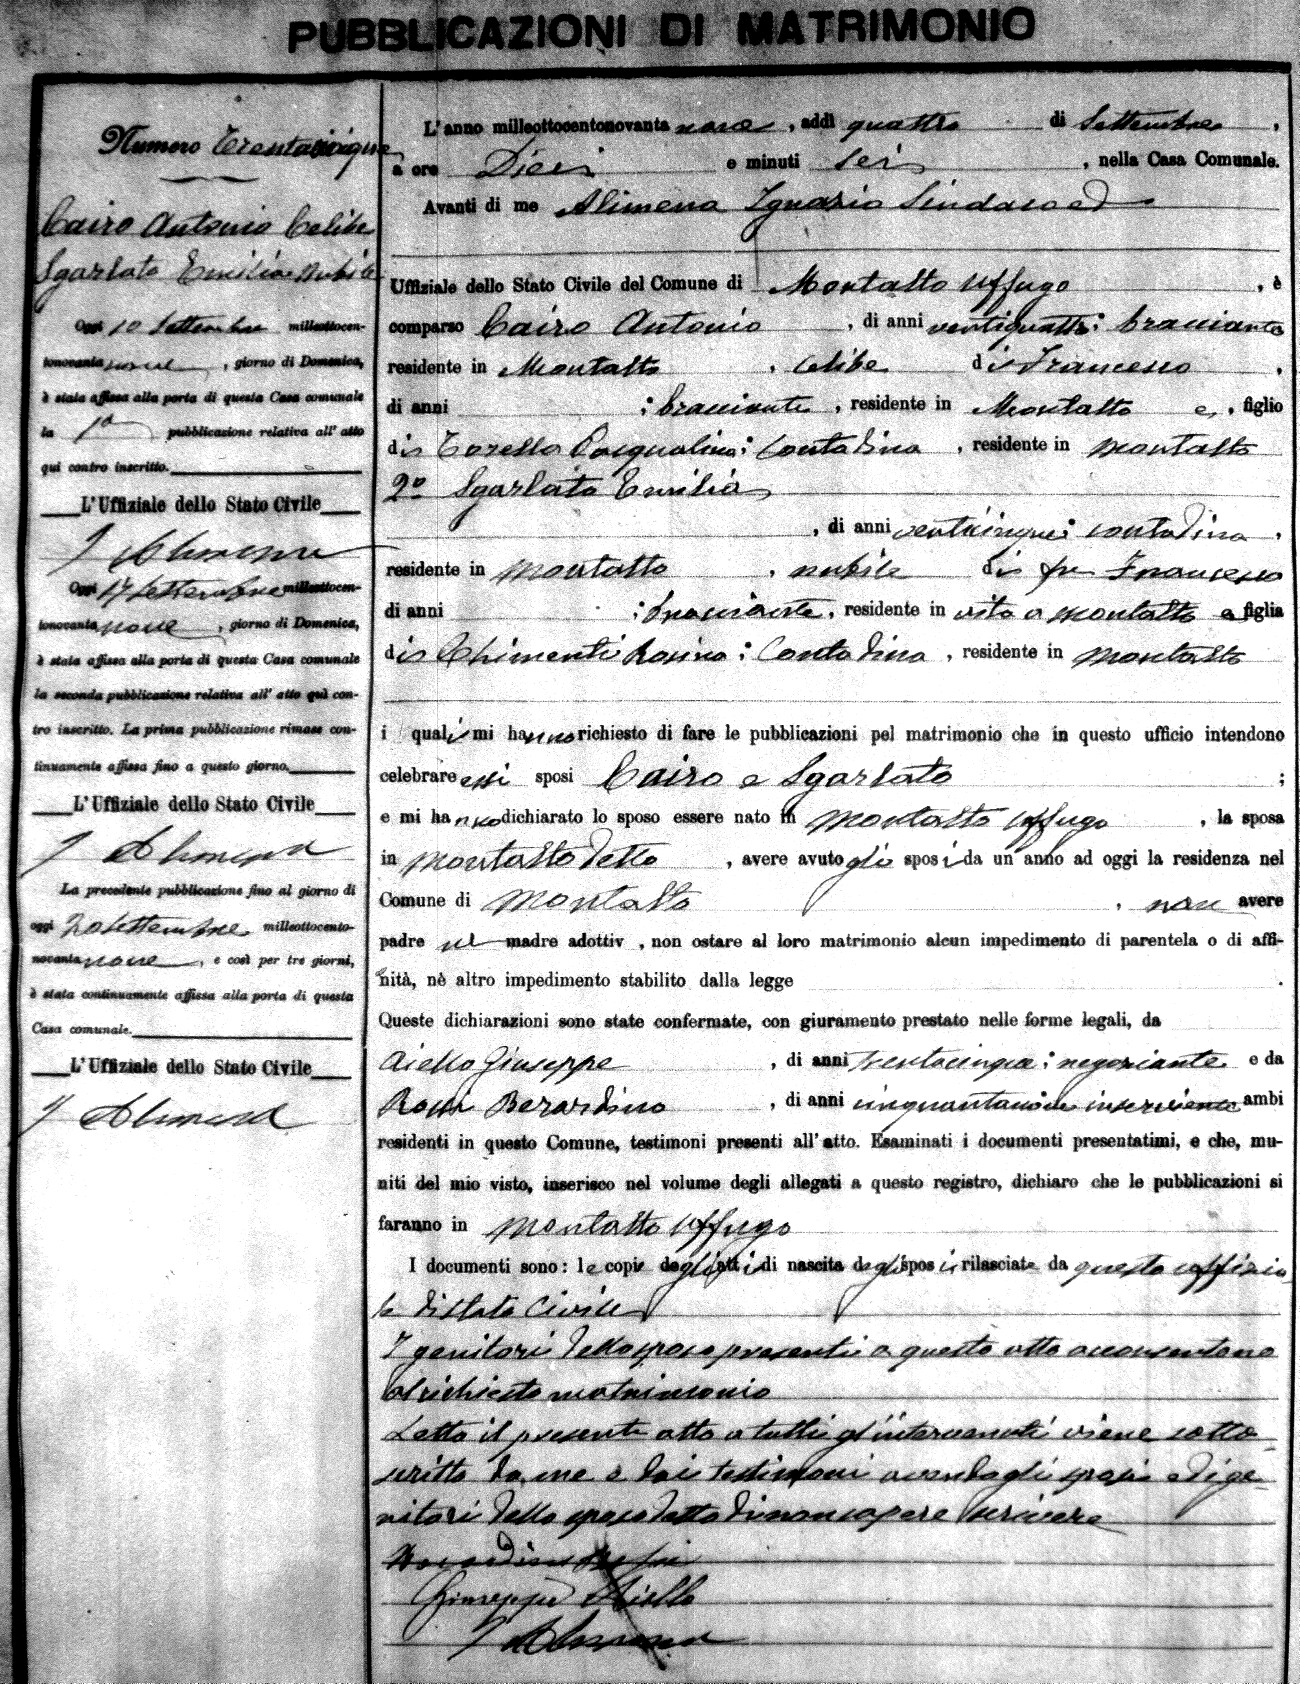 PUBBLICAZIONI DI MATRIMONIO
Numero Trentacinque
Cairo Antonio Celibe
Sgarlato Emilia Nubile
Oggi 10 Settembre milleottocen-
tonovanta nove, giorno di Domenica,
è stata affissa alla porta di questa Casa comunale
la 1a pubblicazione relativa all' atto
qui contro inscritto.
L'Uffiziale dello Stato Civile
I Alimena
Oggi 17 Settembre milleottocen-
tonovanta nove, giorno di Domenica,
è stata affissa alla porta di questa Casa comunale
la seconda pubblicazione relativa all' atto quì con-
tro inscritto. La prima pubblicazione rimase con-
tinuamente affissa fino a questo giorno.
L'Uffiziale dello Stato Civile
I Alimena
La precedente pubblicazione fino al giorno di
oggi 20 Settembre milleottocento-
novanta nove, e così per tre giorni,
è stata continuamente affissa alla porta di questa
Casa comunale.
L'Uffiziale dello Stato Civile
I Alimena
L'anno milleottocentonovanta nove, addì quattro di Settembre,
a ore Dieci e minuti Sei, nella Casa Comunale.
Avanti di me Alimena Ignazio Sindaco ed
Uffiziale dello Stato Civile del Comune di Montalto Uffugo, è
comparso Cairo Antonio, di anni ventiquattro; bracciante
residente in Montalto, celibe di Francesco,
di anni ; bracciante, residente in Montalto e, figlio
di Pasqualina; Contadina, residente in Montalto
2o Sgarlato Emilia
, di anni venticinque; contadina,
residente in Montalto, nubile di fu Francesco
di anni ; bracciante, residente in vita a Montalto e figlia
di Chimenti Rosina; Contadina, residente in Montalto
i quali mi hanno richiesto di fare le pubblicazioni pel matrimonio che in questo ufficio intendono
celebrare essi sposi Cairo e Sgarlato ;
e mi hanno dichiarato lo sposo essere nato in Montalto Uffugo, la sposa
in Montalto detto, avere avuto gli sposi da un anno ad oggi la residenza nel
Comune di Montalto, non avere
padre nè madre adottiv , non ostare al loro matrimonio alcun impedimento di parentela o di affi-
nità, nè altro impedimento stabilito dalla legge .
Queste dichiarazioni sono state confermate, con giuramento prestato nelle forme legali, da
Aiello Giuseppe, di anni trentacinque; negoziante e da
Rossi Berardino, di anni inserviente ambi
residenti in questo Comune, testimoni presenti all'atto. Esaminati i documenti presentatimi, e che, mu-
niti del mio visto, inserisco nel volume degli allegati a questo registro, dichiaro che le pubblicazioni si
faranno in Montalto Uffugo
I documenti sono: le copie degli atti di nascita degli sposi rilasciate da questo uffizia
le di Stato Civile
I genitori dello sposo presenti a questo atto acconsentono
al richiesto matrimonio
Letto il presente atto a tutti gl'intervenuti viene sotto-
scritto da me e dai testimoni avendo gli sposi ed i ge-
nitori dello sposo detto di non sapere scrivere
Giuseppe Aiello
I Alimena